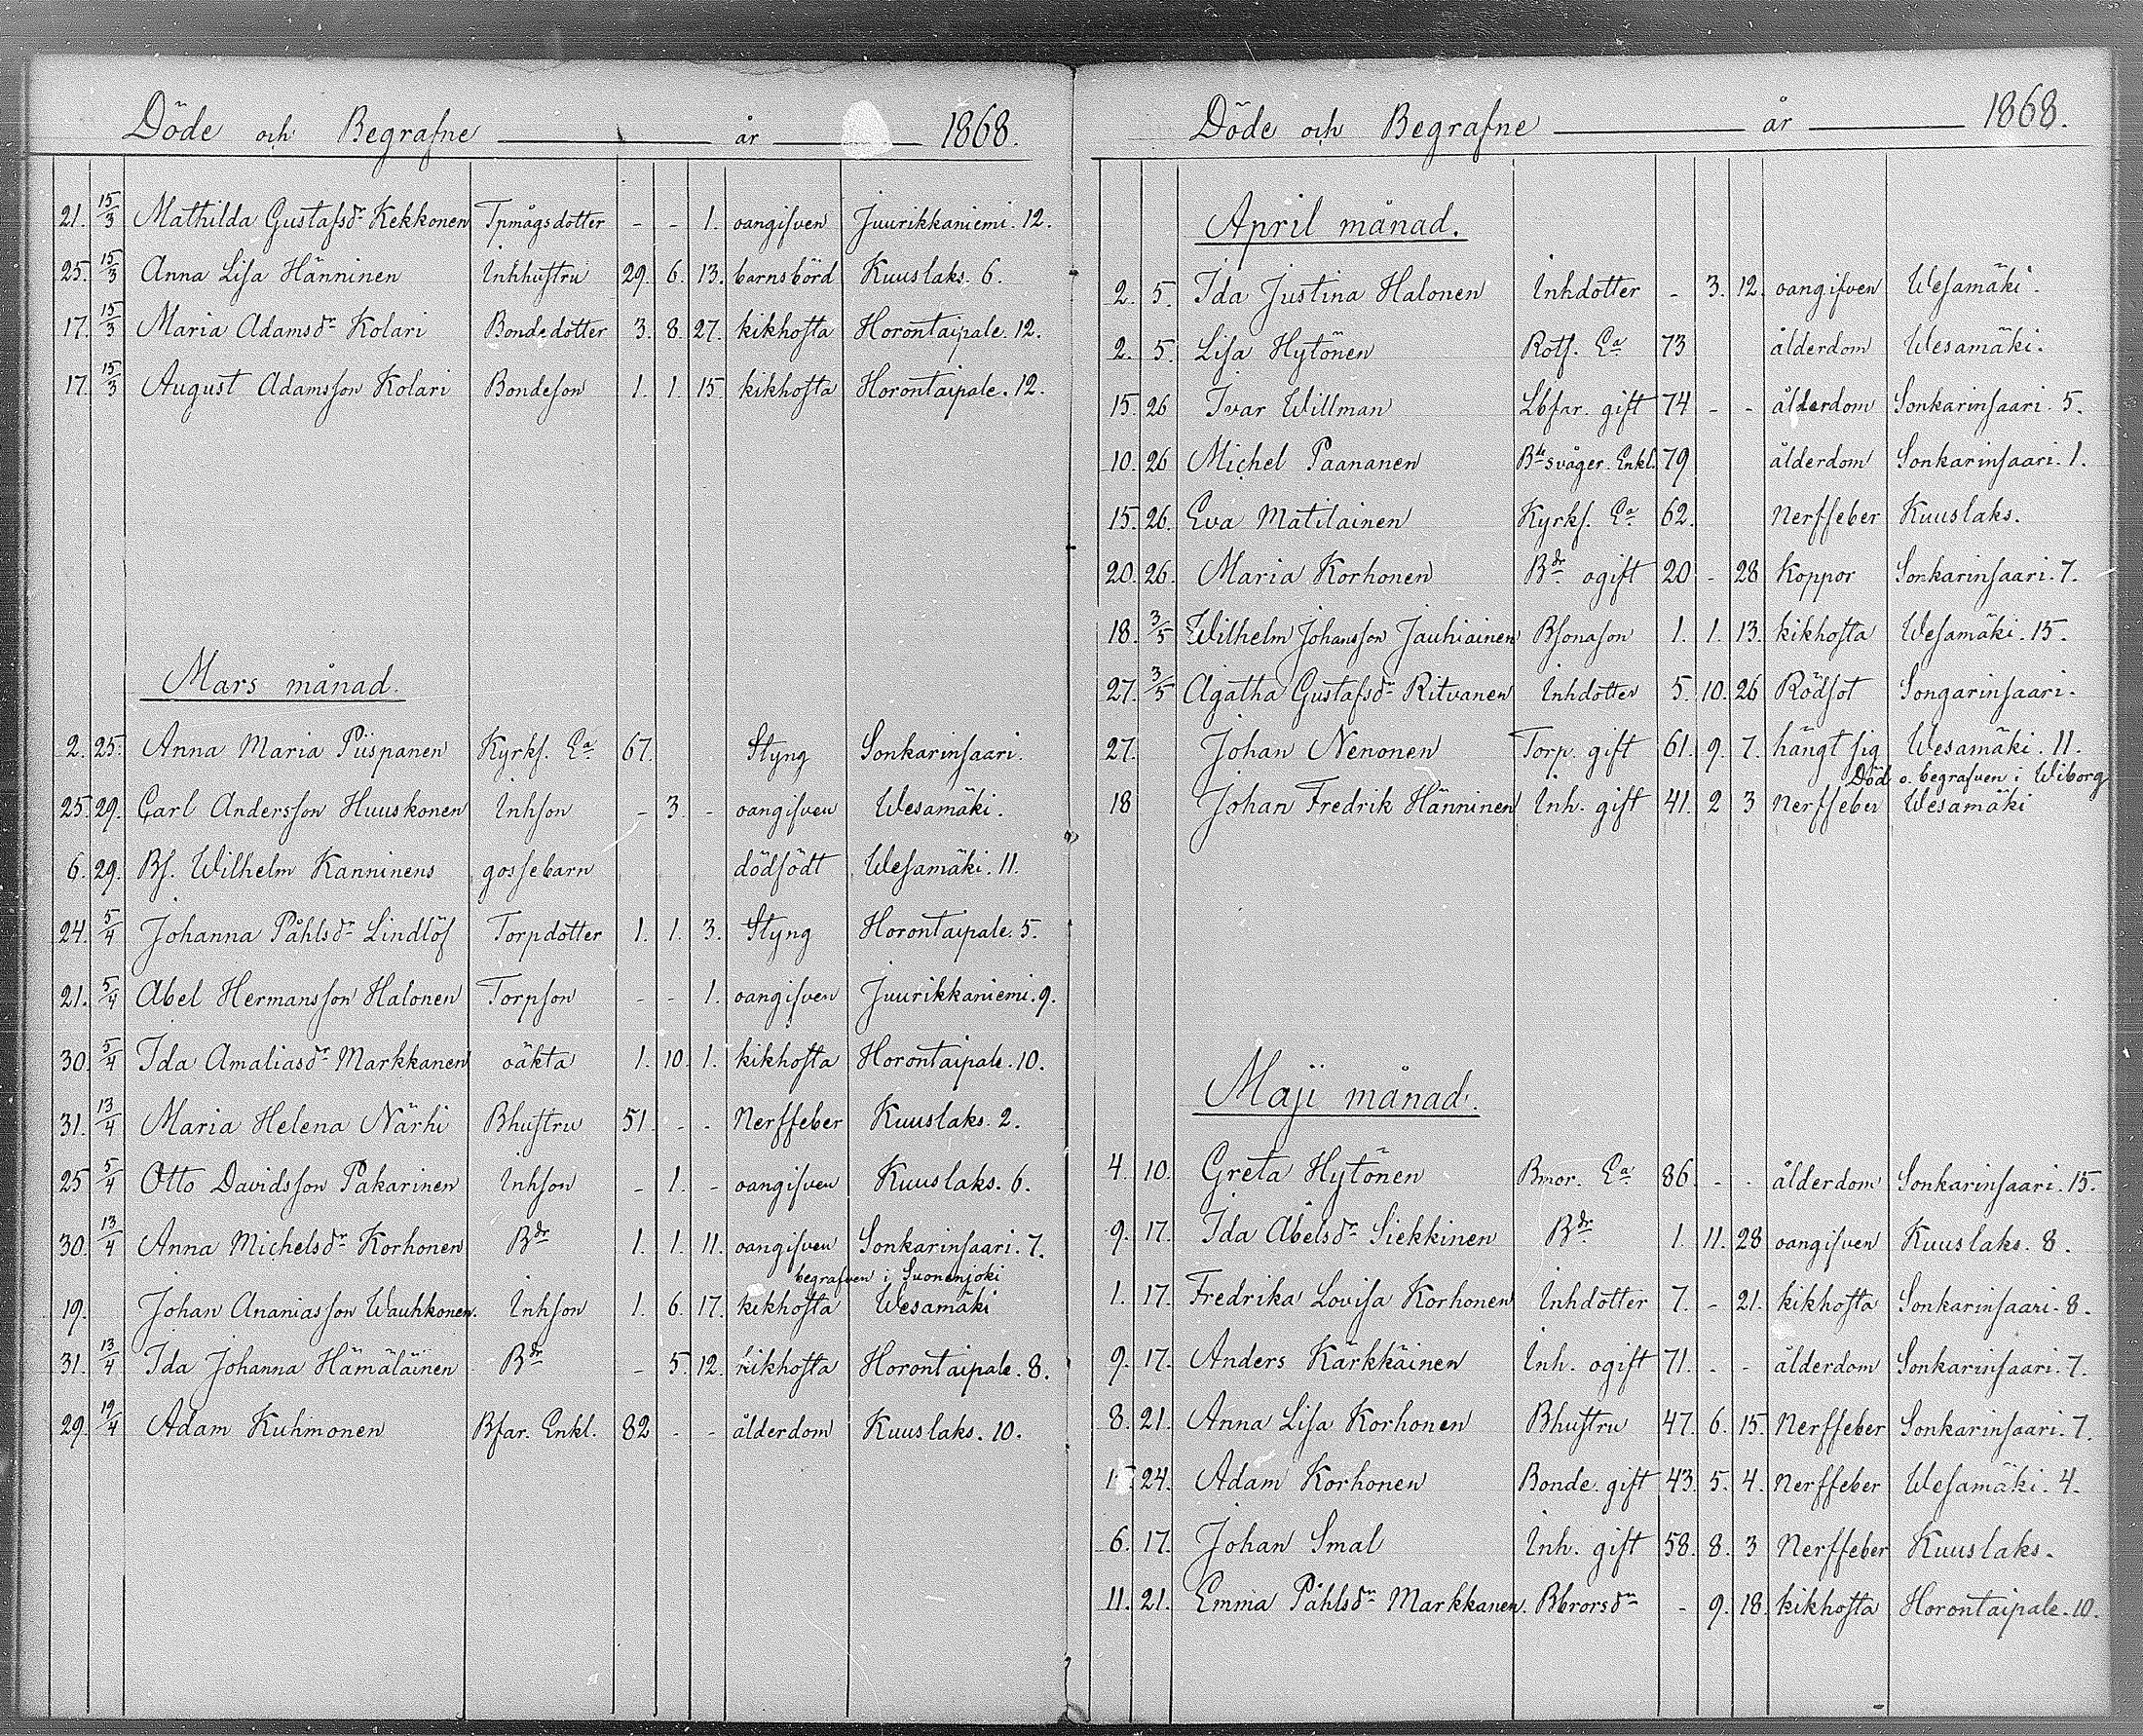 Döde och Begrafne år 1868.
21. 15/3 Mathilda Gustafsdr Kekkonen Tpmågsdotter - - 1. oangifven Juurikkaniemi. 12.
25. 15/3 Anna Lisa Hänninen Inhhustru 29. 6. 13. barnsbörd Kuuslaks. 6.
17. 15/3 Maria Adamsdr Kolari Bondedotter 3. 8. 27. kikhosta Horontaipale. 12.
17. 15/3 August Adamsson Kolari Bondeson 1. 1. 15. kikhosta Horontaipale. 12.
Mars månad.
2. 25. Anna Maria Piispanen Kyrkf. Ea 67. Styng Sonkarinsaari.
25. 29. Carl Andersson Huuskonen Inhson - 3. - oangifven Wesamäki.
6. 29. Bf. Wilhelm Kanninens gossebarn dödfödt Wesamäki. 11.
24. 5/4 Johanna Påhlsdr Lindlöf Torpdotter 1. 1. 3. Styng Horontaipale. 5.
21. 5/4 Abel Hermansson Halonen Torpson - - 1. oangifven Juurikkaniemi. 9.
30. 5/4 Ida Amaliasdr Markkanen oäkta 1. 10. 1. kikhosta Horontaipale. 10.
31. 13/4 Maria Helena Närhi Bhustru 51. - - Nerffeber Kuuslaks. 2.
25 5/4 Otto Davidsson Pakarinen Inhson - 1. - oangifven Kuuslaks. 6.
30. 13/4 Anna Michelsdr Korhonen Bdr 1. 1. 11. oangifven Sonkarinsaari. 7.
begrafven i Suonenjoki
19. Johan Ananiasson Wauhkonen. Inhson 1. 6. 17. kikhosta Wesamäki
31. 13/4 Ida Johanna Hämäläinen Bdr - 5. 12. kikhosta Horontaipale. 8.
29. 19/4 Adam Kuhmonen Bfar. Enkl. 82 - - ålderdom Kuuslaks. 10.
Döde och Begrafne år 1868.
April månad.
2. 5. Ida Justina Halonen Inhdotter - 3. 12. oangifven Wesamäki.
2. 5. Lisa Hytönen Rotf. Ea 73 ålderdom Wesamäki.
15. 26 Ivar Willman Lbfar. gift 74 - - ålderdom Sonkarinsaari. 5.
10. 26 Michel Paananen Bdesvåger. Enkl. 79 ålderdom Sonkarinsaari. 1.
15. 26. Eva Matilainen Kyrkf. Ea 62. Nerffeber Kuuslaks.
20. 26. Maria Korhonen Bdr. ogift 20 - 28 Koppor Sonkarinsaari. 7.
18. 3/5 Wilhelm Johansson Jauhiainen Bsonason 1. 1. 13. kikhosta Wesamäki. 15.
27. 3/5 Agatha Gustafsdr Ritvanen Inhdotter 5. 10. 26 Rödsot Songarinsaari.
27. Johan Nenonen Torp. gift 61. 9. 7. hängt sig Wesamäki. 11.
Död o. begrafven i Wiborg
18 Johan Fredrik Hänninen Inh. gift 41. 2 3 Nerffeber Wesamäki
Maji månad.
4. 10. Greta Hytönen Bmor. Ea 86. - - ålderdom Sonkarinsaari. 15.
9. 17. Ida Abelsdr Siekkinen Bdr. 1. 11. 28 oangifven Kuuslaks. 8.
1. 17. Fredrika Lovisa Korhonen Inhdotter 7. - 21. kikhosta Sonkarinsaari. 8.
9. 17. Anders Kärkkäinen Inh. ogift 71. - - ålderdom Sonkarinsaari. 7.
8. 21. Anna Lisa Korhonen Bhustru 47. 6. 15. Nerffeber Sonkarinsaari. 7.
24. Adam Korhonen Bonde. gift 43. 5. 4. Nerffeber Wesamäki. 4.
6. 17. Johan Smal Inh. gift 58. 8. 3 Nerffeber Kuuslaks.
11. 21. Emma Påhlsdr Markkanen. Bbrorsdr - 9. 18. kikhosta Horontaipale. 10.